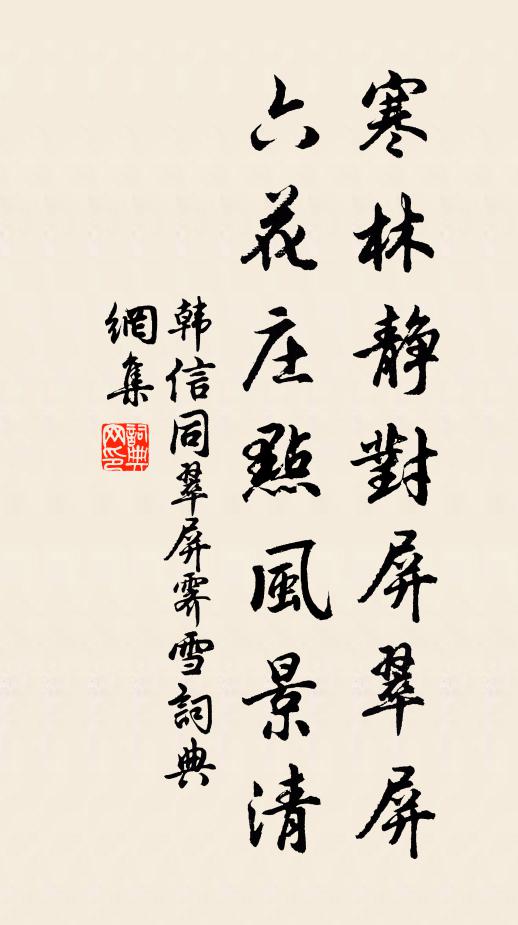 寒林静對屏翠屏
六花庄點風景清
韩信同翠屏霁雪詞典
網集
詞典网印